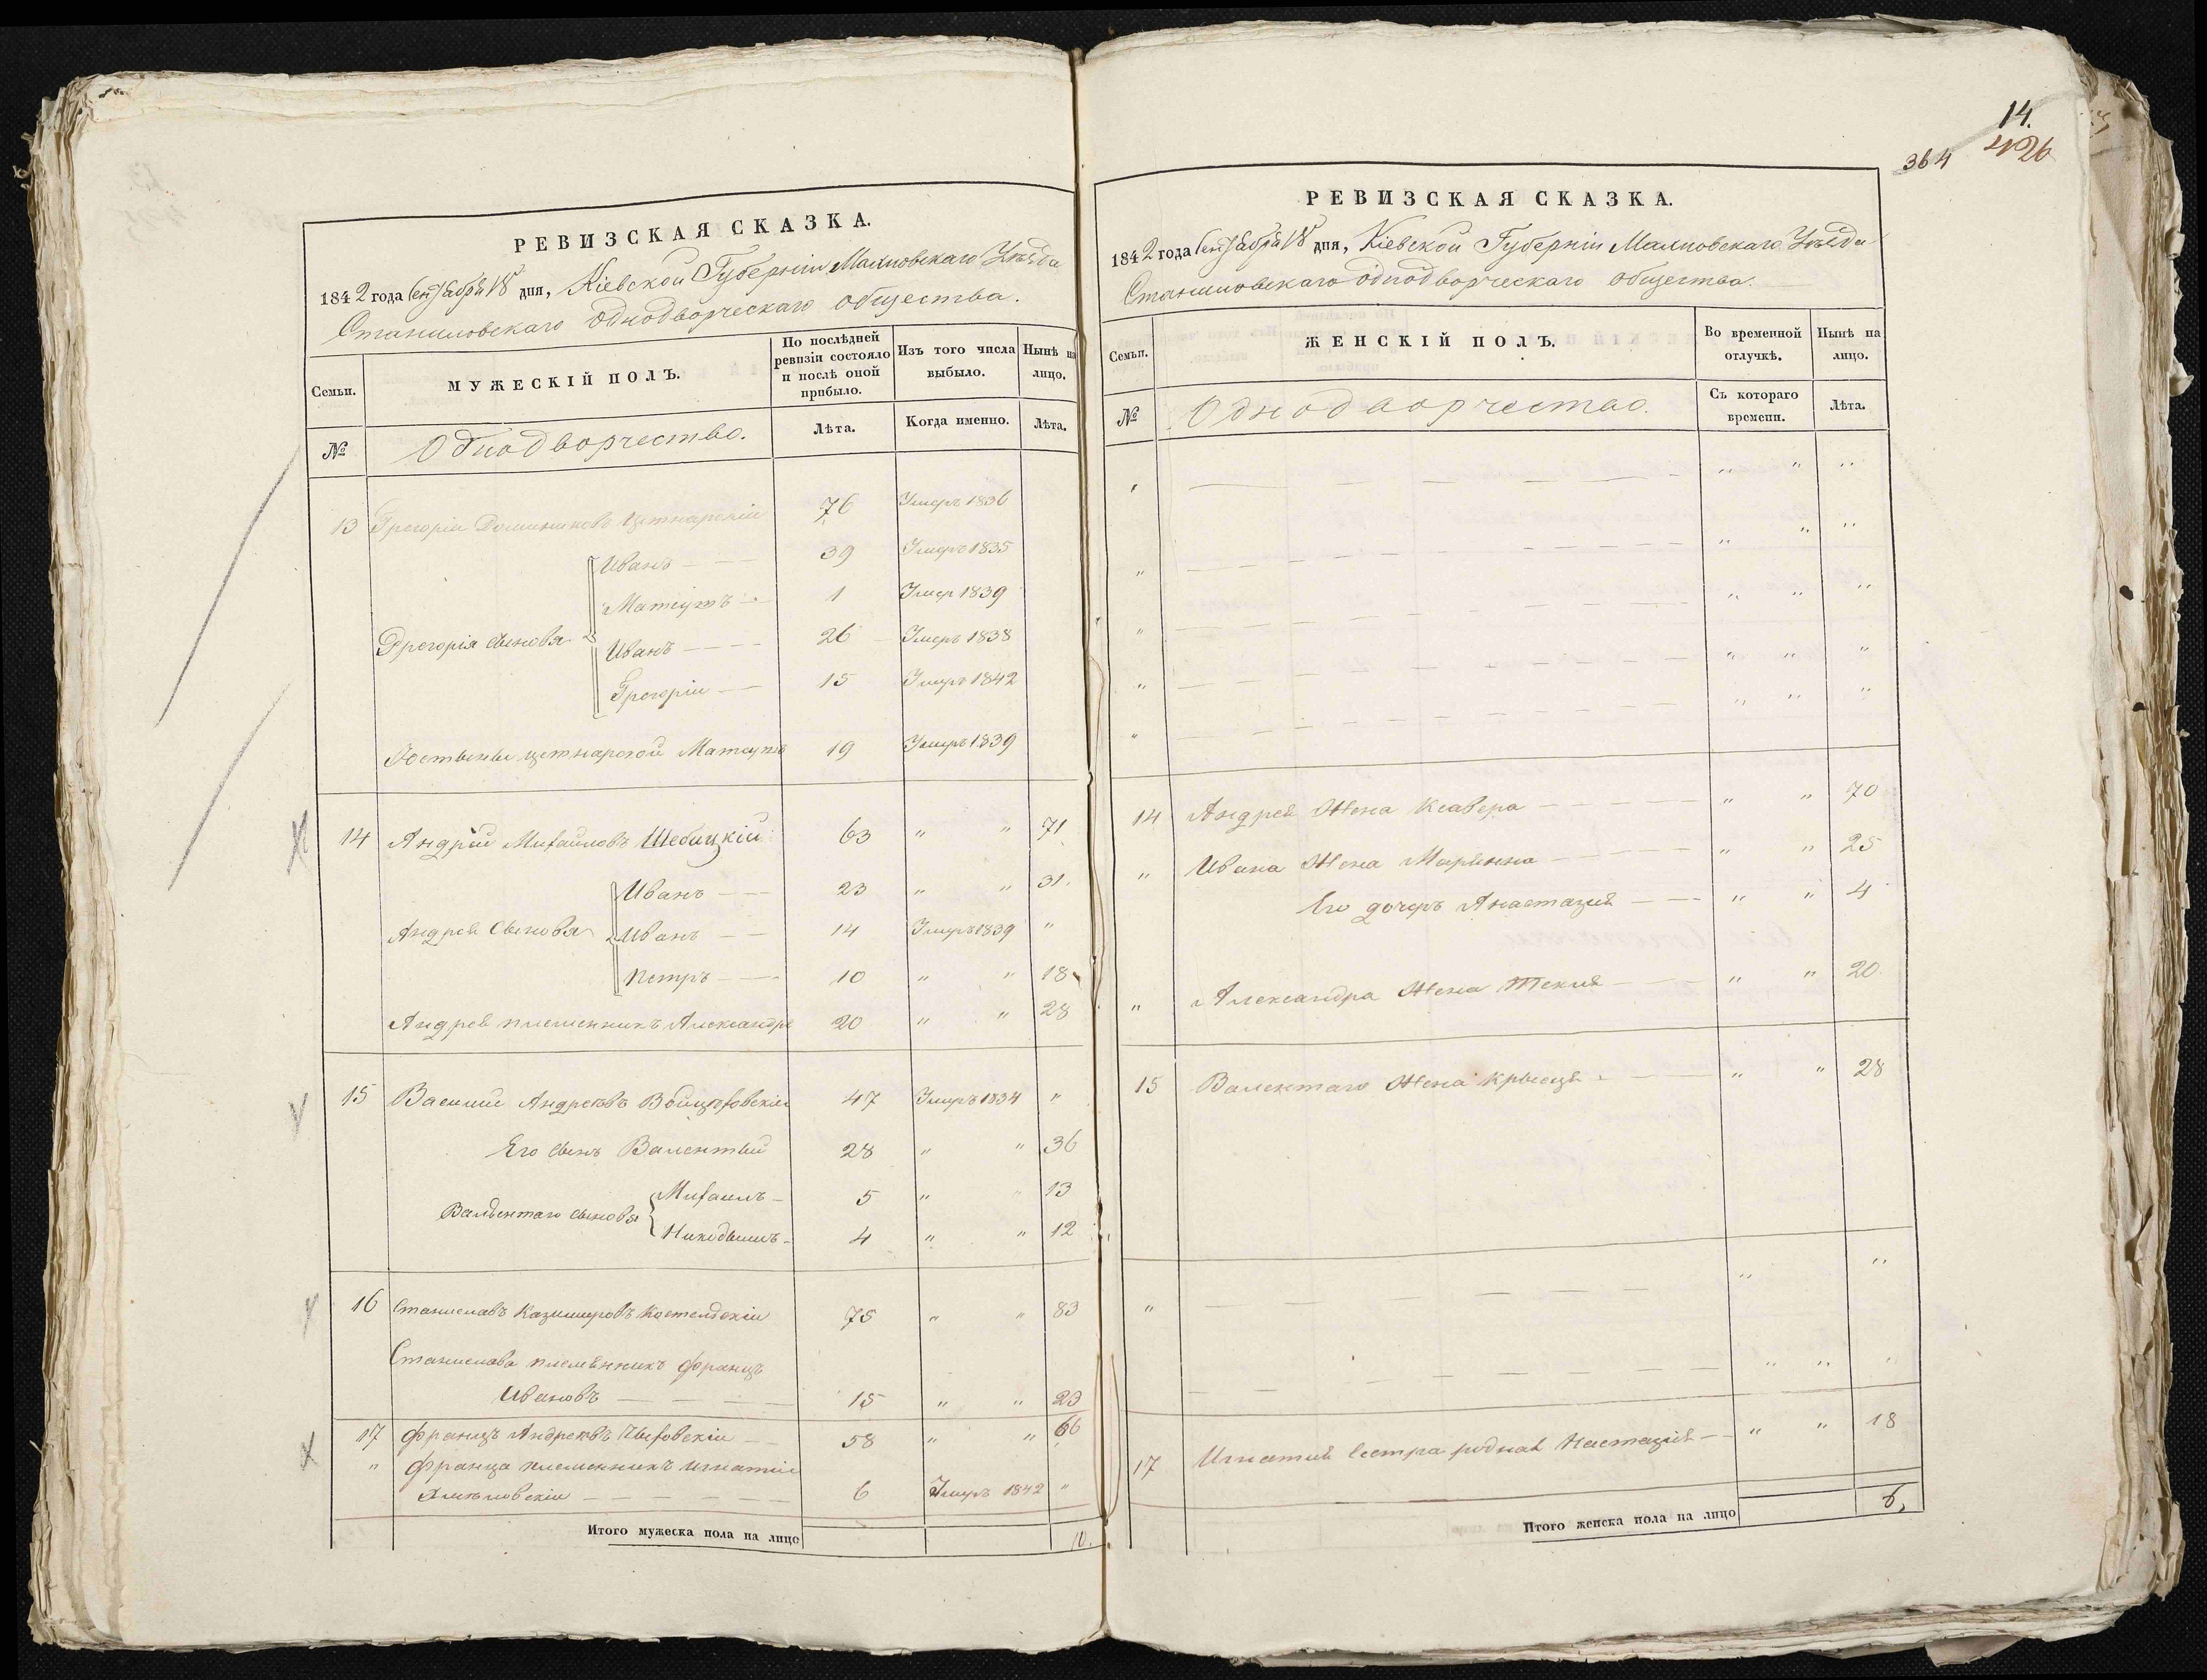 РЕВИЗСКАЯ СКАЗКА.
1842 года Сентября 18 дня, Кіевской Губерніи Махновскаго Уѣзда
Станиловскаго однодворческаго общества.
Семьи.
МУЖЕСКІЙ ПОЛЪ.
По послѣдней ревизіи состояло и послѣ оной прибыло.
Изъ того числа выбыло.
Нынѣ на лицо.
№
Однодворчество.
Лѣта.
Когда именно.
Лѣта.
13 Грегорій Доминиковъ 76 Умеръ 1836
Иванъ 39 Умеръ 1835
1 Умер 1839
Грегорія сыновя
Иванъ 26 Умеръ 1838
Грегорій 15 Умеръ 1842
19 Умеръ 1839
14 Андрій Михайловъ Шебицкій 63 " " 71
Иванъ 23 " " 31.
Андрея Сыновя Иванъ 14 Умеръ 1839 "
Петръ 10 " " 18
Андрея племенникъ Александръ 20 " " 28
15 Василий Андреевъ Войцѣховскій 47 Умеръ 1834 "
Его сынъ Валентый 28 " " 36
Михаилъ 5 " " 13
Валентаго сыновя
Никодымъ 4 " " 12
16 Станиславъ Казимировъ 75 " " 83
Станислава племѣнникъ Францъ
Ивановъ 15 " " 23
17 Францъ Андреевъ 58 " " 66
" Франца племенникъ Игнатій
6 Умеръ 1842 "
Итого мужеска пола на лицо 10.
14.
426
364
РЕВИЗСКАЯ СКАЗКА.
1842 года Сентября 18 дня, Кіевской Губерніи Махновскаго Уѣзда
Станиловскаго однодворческаго общества.
Семьи.
ЖЕНСКІЙ ПОЛЪ.
Во временной отлучкѣ.
Нынѣ на лицо.
№
Однодворчество.
Съ котораго времени.
Лѣта.
14 Андрея Жена Ксавера " " 70
" Ивана Жена Маріянна " " 25
Его дочеръ Анастазия " " 4
" Александра Жена Текля " " 20
15 Валентаго Жена " " 28
17 Игнатия Сестра родная Настазия " " 18
Итого женска пола на лицо 6.